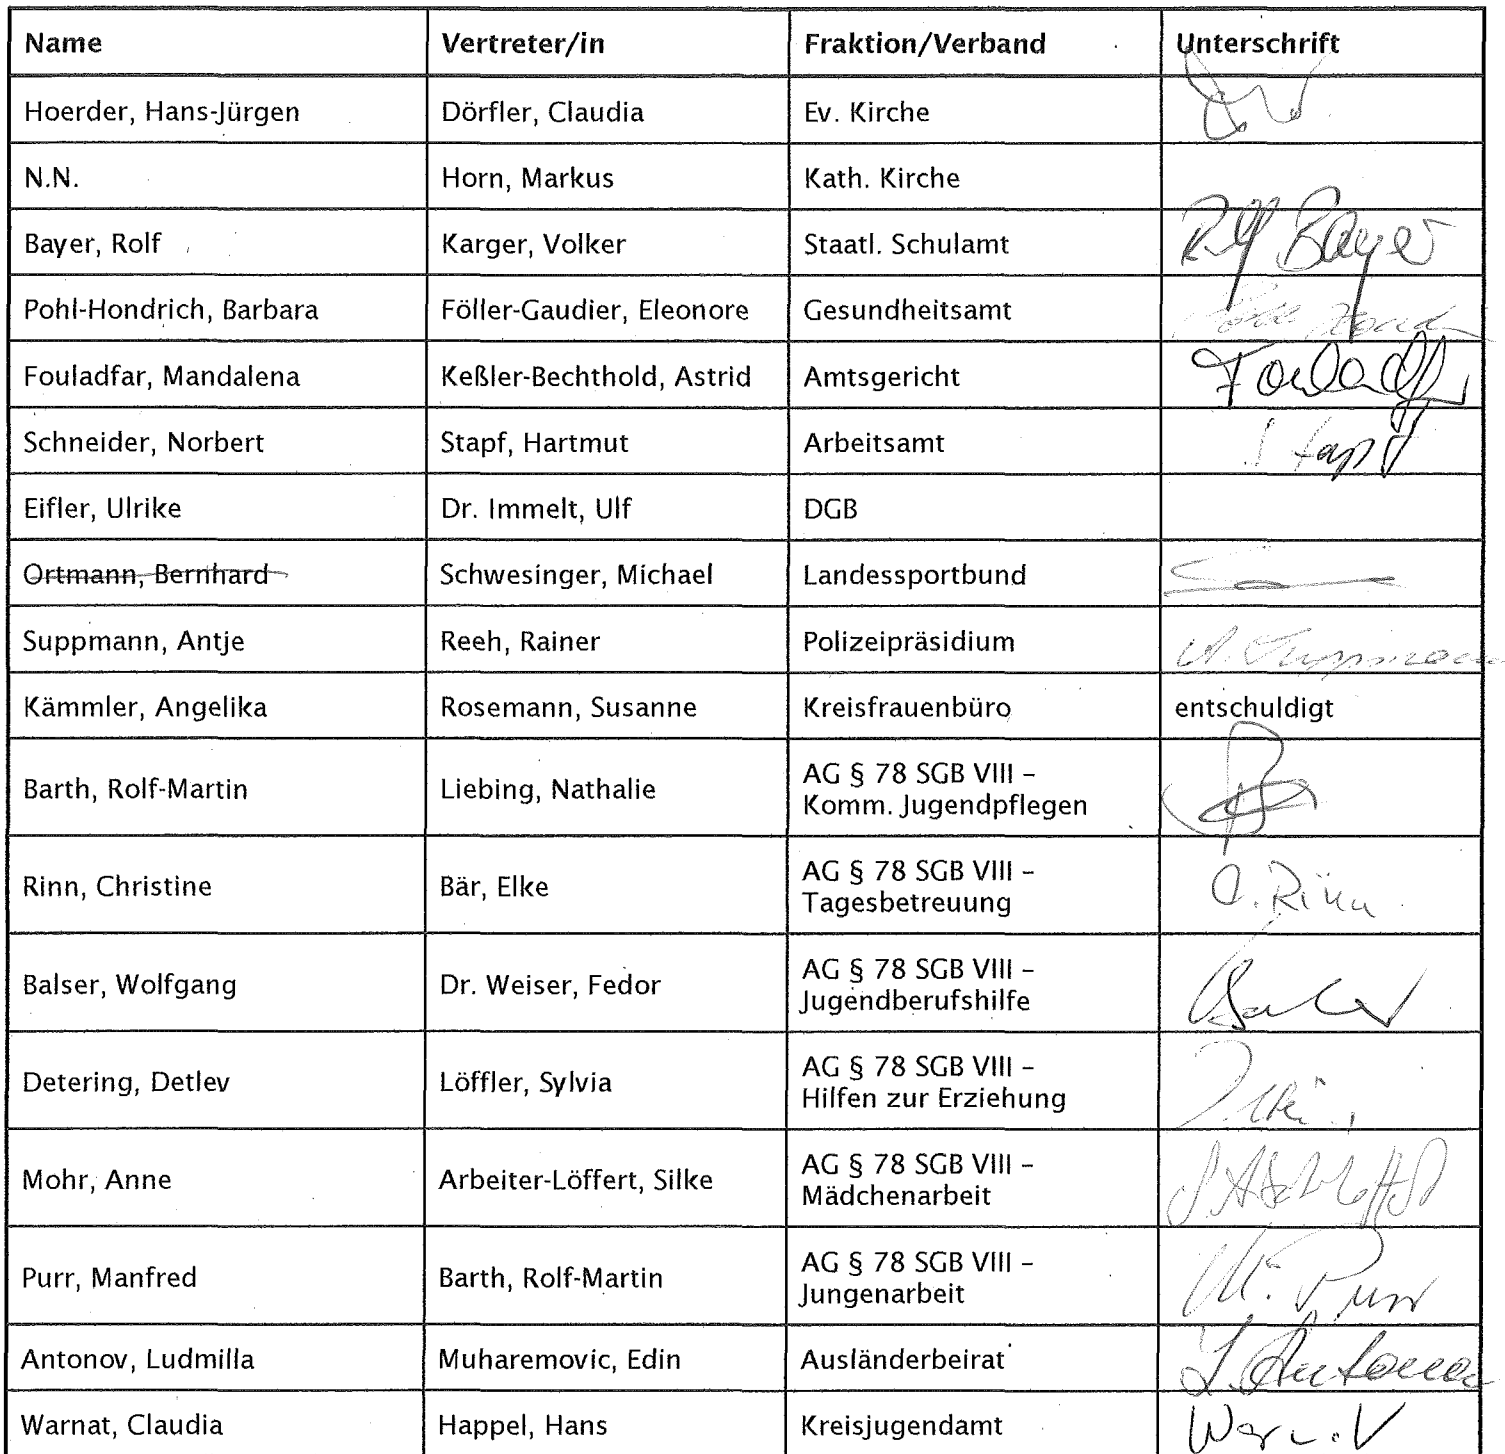 Name Vertreter/in Fraktion/Verband Unterschrift
Hoerder, Hans-Jürgen Dörfler, Claudia Ev. Kirche
N.N. Horn, Markus Kath. Kirche
Bayer, Rolf Karger, Volker Staatl. Schulamt Rolf Bayer
Pohl-Hondrich, Barbara Föller-Gaudier, Eleonore Gesundheitsamt
Fouladfar, Mandalena Keßler-Bechthold, Astrid Amtsgericht
Schneider, Norbert Stapf, Hartmut Arbeitsamt Stapf
Eifler, Ulrike Dr. Immelt, Ulf DGB
Ortmann, Bernhard Schwesinger, Michael Landessportbund
Suppmann, Antje Reeh, Rainer Polizeipräsidium A. Suppmann
Kämmler, Angelika Rosemann, Susanne Kreisfrauenbüro entschuldigt
Barth, Rolf-Martin Liebing, Nathalie AG § 78 SGB VIII –
Komm. Jugendpflegen
Rinn, Christine Bär, Elke AG § 78 SGB VIII – C. Rinn
Tagesbetreuung
Balser, Wolfgang Dr. Weiser, Fedor AG § 78 SGB VIII –
Jugendberufshilfe
Detering, Detlev Löffler, Sylvia AG § 78 SGB VIII –
Hilfen zur Erziehung
Mohr, Anne Arbeiter-Löffert, Silke AG § 78 SGB VIII –
Mädchenarbeit
Purr, Manfred Barth, Rolf-Martin AG § 78 SGB VIII – M. Purr
Jungenarbeit
Antonov, Ludmilla Muharemovic, Edin Ausländerbeirat L. Antonov
Warnat, Claudia Happel, Hans Kreisjugendamt